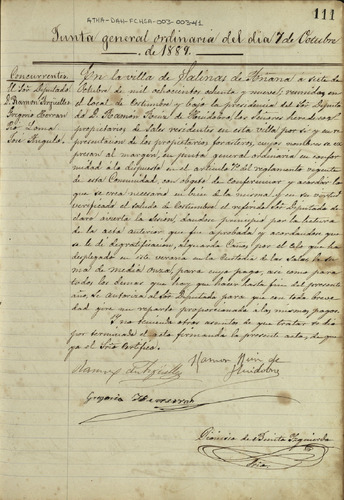 ATHA-DAH-FCHSA-003-003-41
111
Junta general ordinaria del dia 7 de Octubre
de 1889.
Concurrentes
El Sor Diputado
D. Ramon Arguelles
Gregorio Herran
Pio Loma
José Angulo
En la villa de Salinas de Añana a siete de
Octubre de mil ochocientos ochenta y nueve, reunidos en
el local de Costumbre y bajo la presidencia del Sor Diputa
do D. Ramon Ruiz de Huidobro, los Señores herederos
propietarios de Sales residentes en esta villa por si y en re
presentacion de los propietarios forasteros, cuyos nombres se ex
presan al margen, en junta general ordinaria en confor
midad á lo dispuesto en el articulo 7º del reglamento vigente
de esta Comunidad, con objeto de Conferenciar y acordar lo
que se crea necesario en bien de la misma, y en su virtud
verificado el saludo de Costumbre el referido Sor Diputado de
claro abierta la Sesion, dandose principio por la lectura
de la acta anterior que fue aprobada y acordandose que
se le dé de gratificacion, al guarda Caños por el celo que ha
desplegado en este verano en la Custodia de las Sales, la su
ma de media onza, para cuyo pago, asi como para
todos los demas que hay que hacer hasta fin del presente
año, se Autoriza al Sor Diputado para que con toda breve
dad gire un reparto proporcionado a los mismos pagos.
Y no teniendo otros asuntos de que tratar se dio
por terminada el acta firmando la presente acta, de que
yo el Srio Certifico.
Ramon de Arguelles
Ramon Ruiz de
Huidobro
Gregorio Herran
Dionisio de Benito Izquierdo
Srio